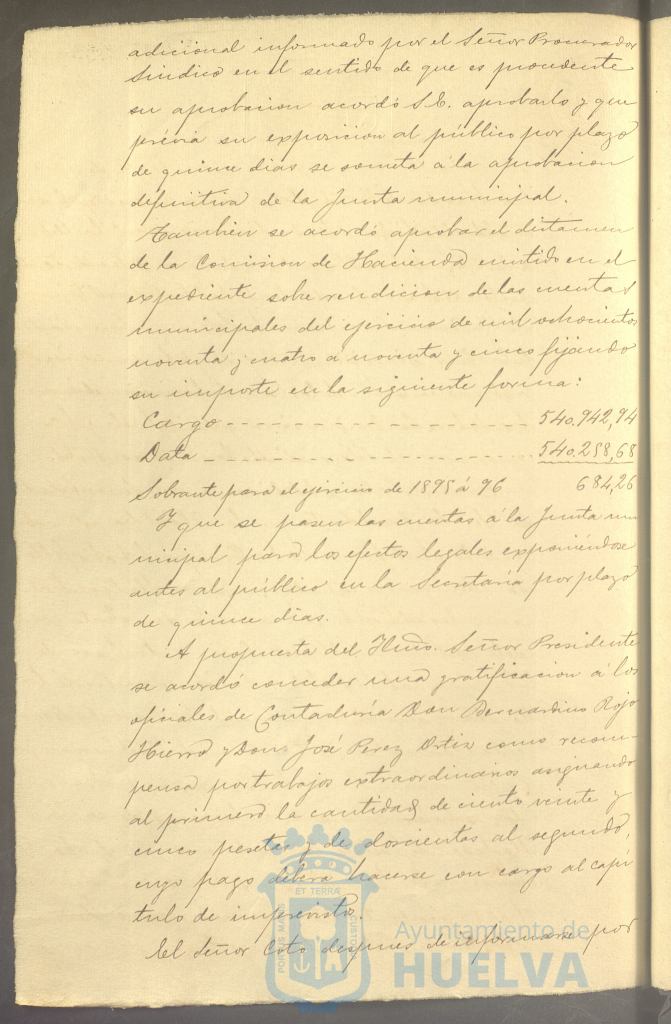 adicional informado por el Señor Procurador
Sindico en el sentido de que es procedente
su aprobacion acordó S.E. aprobarlo y que
prévia su exposicion al público por plazo
de quince dias se someta á la aprobacion
definitiva de la Junta municipal.
Tambien se acordó aprobar el dictamen
de la Comision de Hacienda emitido en el
expediente sobre rendicion de las cuentas
municipales del ejercicio de mil ochocientos
noventa y cuatro á noventa y cinco fijando
su importe en la siguiente forma:
Cargo - - - - - - - - - - 540.942,94
Data - - - - - - - - - - 540.258,68
Sobrante para el ejercicio de 1895 á 96 684,26
Y que se pasen las cuentas á la Junta mu-
nicipal para los efectos legales exponiéndose
antes al público en la Secretaría por plazo
de quince dias.
A propuesta del Iltmo. Señor Presidente
se acordó conceder una gratificacion á los
oficiales de Contaduría Don Bernardino Rojo
Hierro y Don José Perez Ortiz como recom-
pensa por trabajos extraordinarios asignando
al primero la cantidad de ciento veinte y
cinco pesetas y de doscientas al segundo,
cuyo pago deberá hacerse con cargo al capí
tulo de imprevistos.
El Señor Coto despues de informarse por
ET TERRÆ
PORTUS MARIS
CUSTODIA
Ayuntamiento de
HUELVA